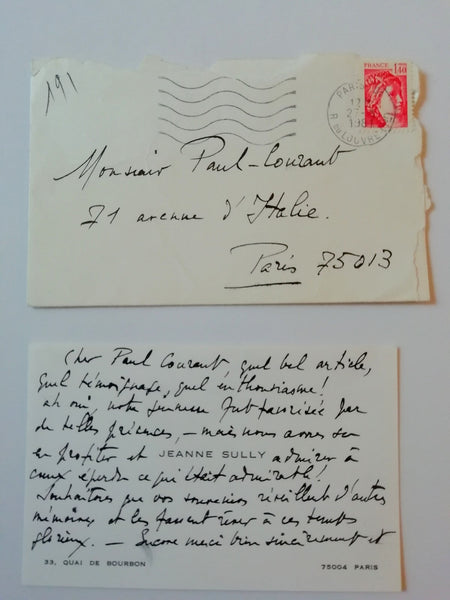 191
FRANCE
1,40
PARIS
R. DU LOUVRE
Monsieur Paul-Courant
71 avenue d'Italie.
Paris 75013
Cher Paul Courant, quel bel article,
quel témoignage, quel enthousiasme!
ah oui, notre jeunesse fut favorisée par
de telles présences, – mais nous avons su
en profiter et JEANNE SULLY admirer à
ce qui était admirable!
Souhaitons que vos souvenirs réveillent d'autres
mémoires et les fassent rêver à ces temps
glorieux. – Encore merci bien sincèrement et
33, QUAI DE BOURBON 75004 PARIS